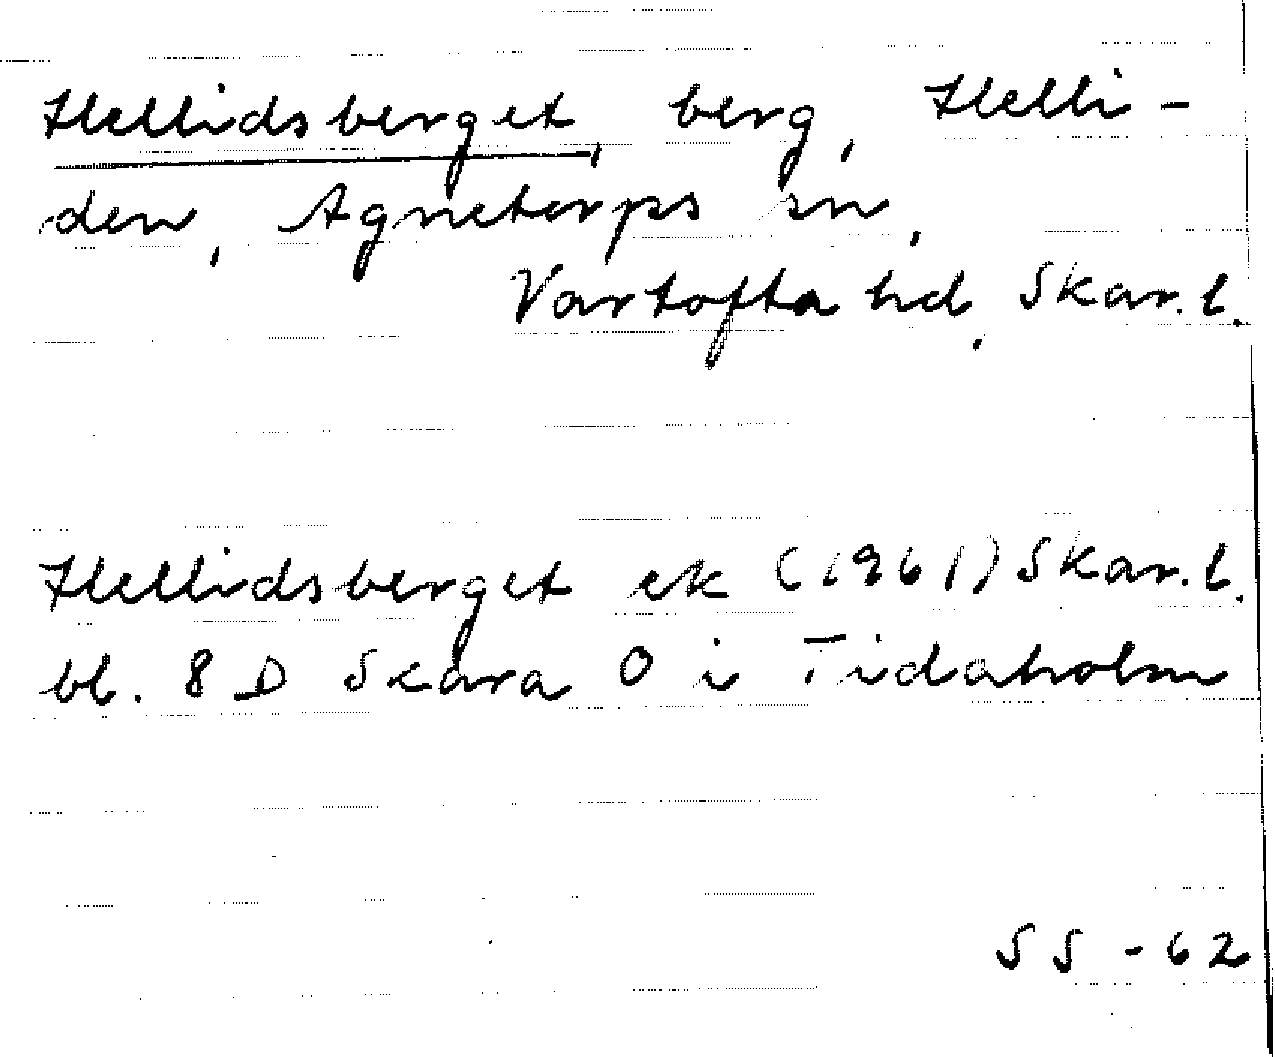 Hellidsberget, berg, Helli-
den, Agnetorps sn,
Vartofta hd, Skar. l.
Hellidsberget ek (1961) Skar. l.
bl. 8 D Skara O i Tidaholm
SS - 62